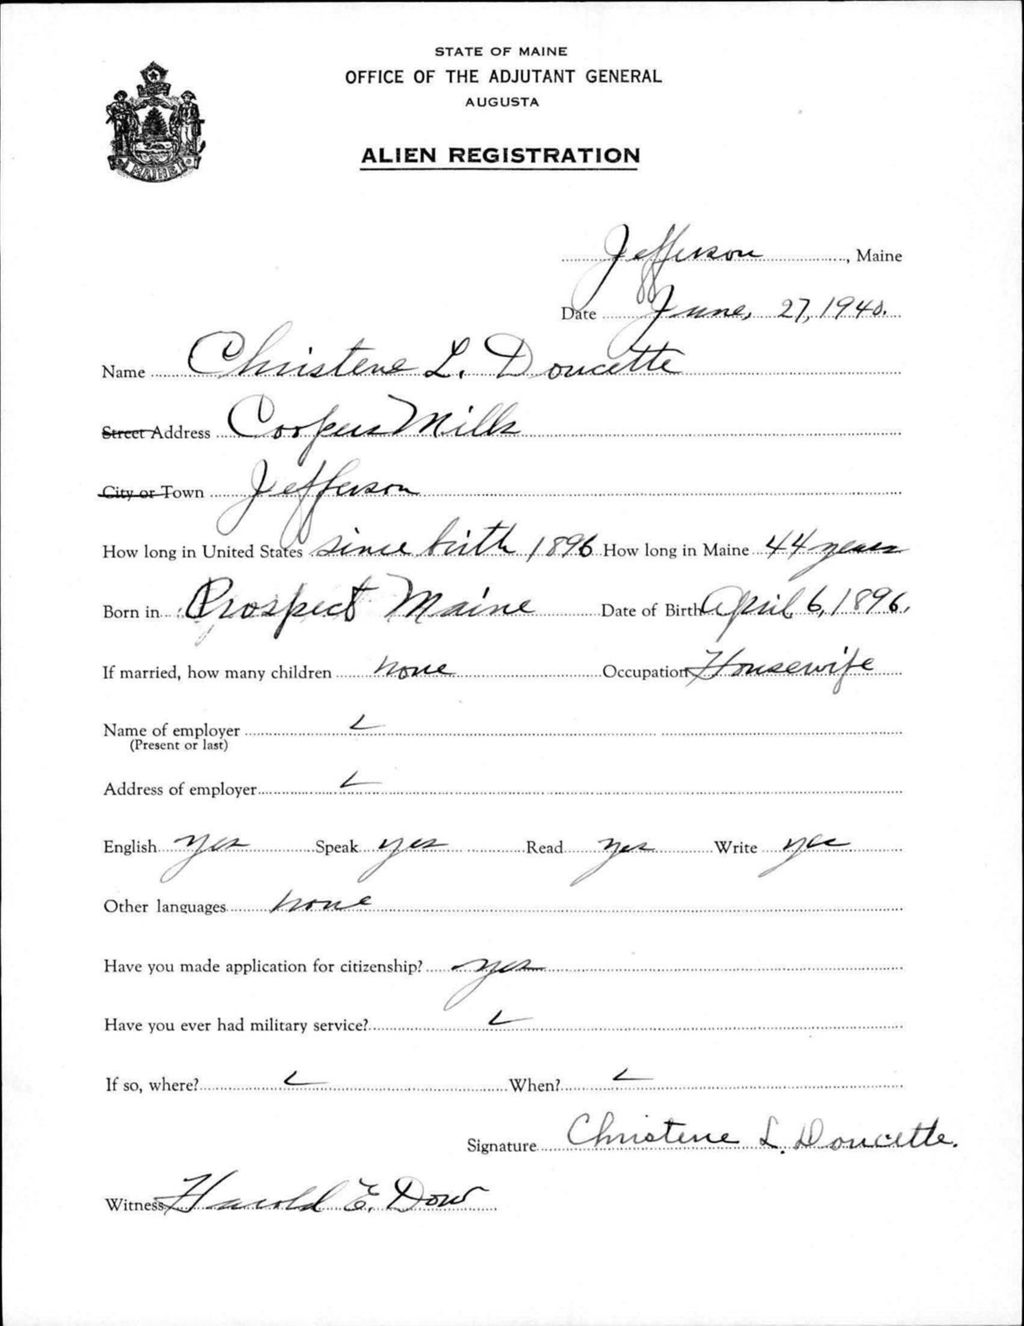 STATE OF MAINE
OFFICE OF THE ADJUTANT GENERAL
AUGUSTA
MAINE
ALIEN REGISTRATION
Jefferson, Maine
Date June, 27, 1940.
Name Christene L. Doucette
Street Address Coopers Mills
City or Town Jefferson
How long in United States since birth 1896 How long in Maine 44 years
Born in Prospect Maine Date of Birth April, 6, 1896.
If married, how many children none Occupation Housewife
Name of employer
(Present or last)
Address of employer
English yes Speak yes Read yes Write yes
Other languages none
Have you made application for citizenship? yes
Have you ever had military service?
If so, where? When?
Signature Christene L. Doucette.
Witness Harold E. Dow